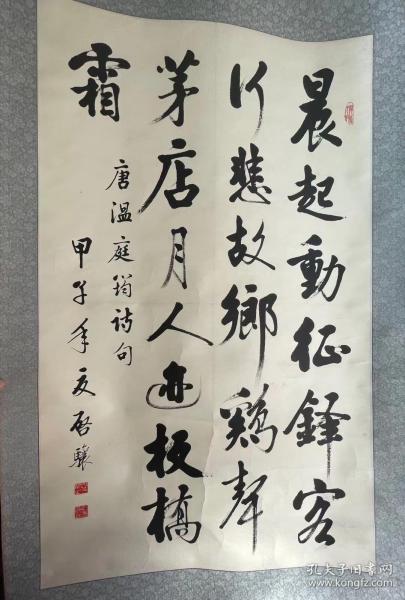 晨起動征鐸客
行悲故鄉鷄聲
茅店月人迹板橋
霜
唐温庭筠詩句
甲子年夏啓驤
孔夫子旧书网
www.kongfz.com